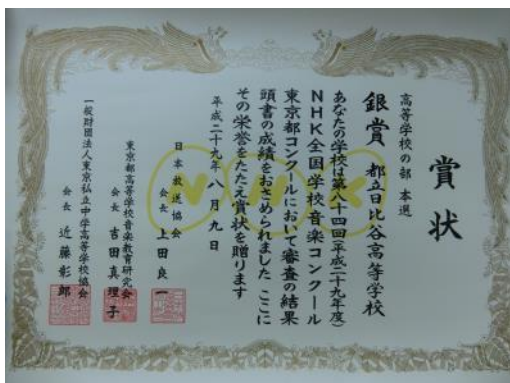 賞状
高等学校の部 本選
銀賞 都立日比谷高等学校
あなたの学校は第八十四回(平成二十九年度)
NHK全国学校音楽コンクール
東京都コンクールにおいて審査の結果
頭書の成績をおさめられました ここに
その栄誉をたたえ賞状を贈ります
平成二十九年八月九日
日本放送協会
会長 上田良一
東京都高等学校音楽教育研究会
会長 吉田真理子
一般財団法人東京私立中学高等学校協会
会長 近藤彰郎
NHK